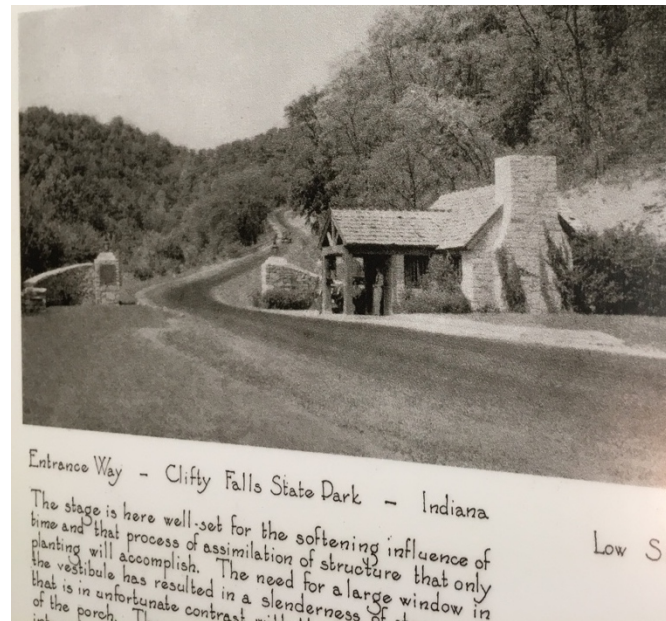 Entrance Way - Clifty Falls State Park - Indiana
The stage is here well-set for the softening influence of
time and that process of assimilation of structure that only
planting will accomplish. The need for a large window in
the vestibule has resulted in a slenderness of
that is in unfortunate contrast with
of the porch.
Low S